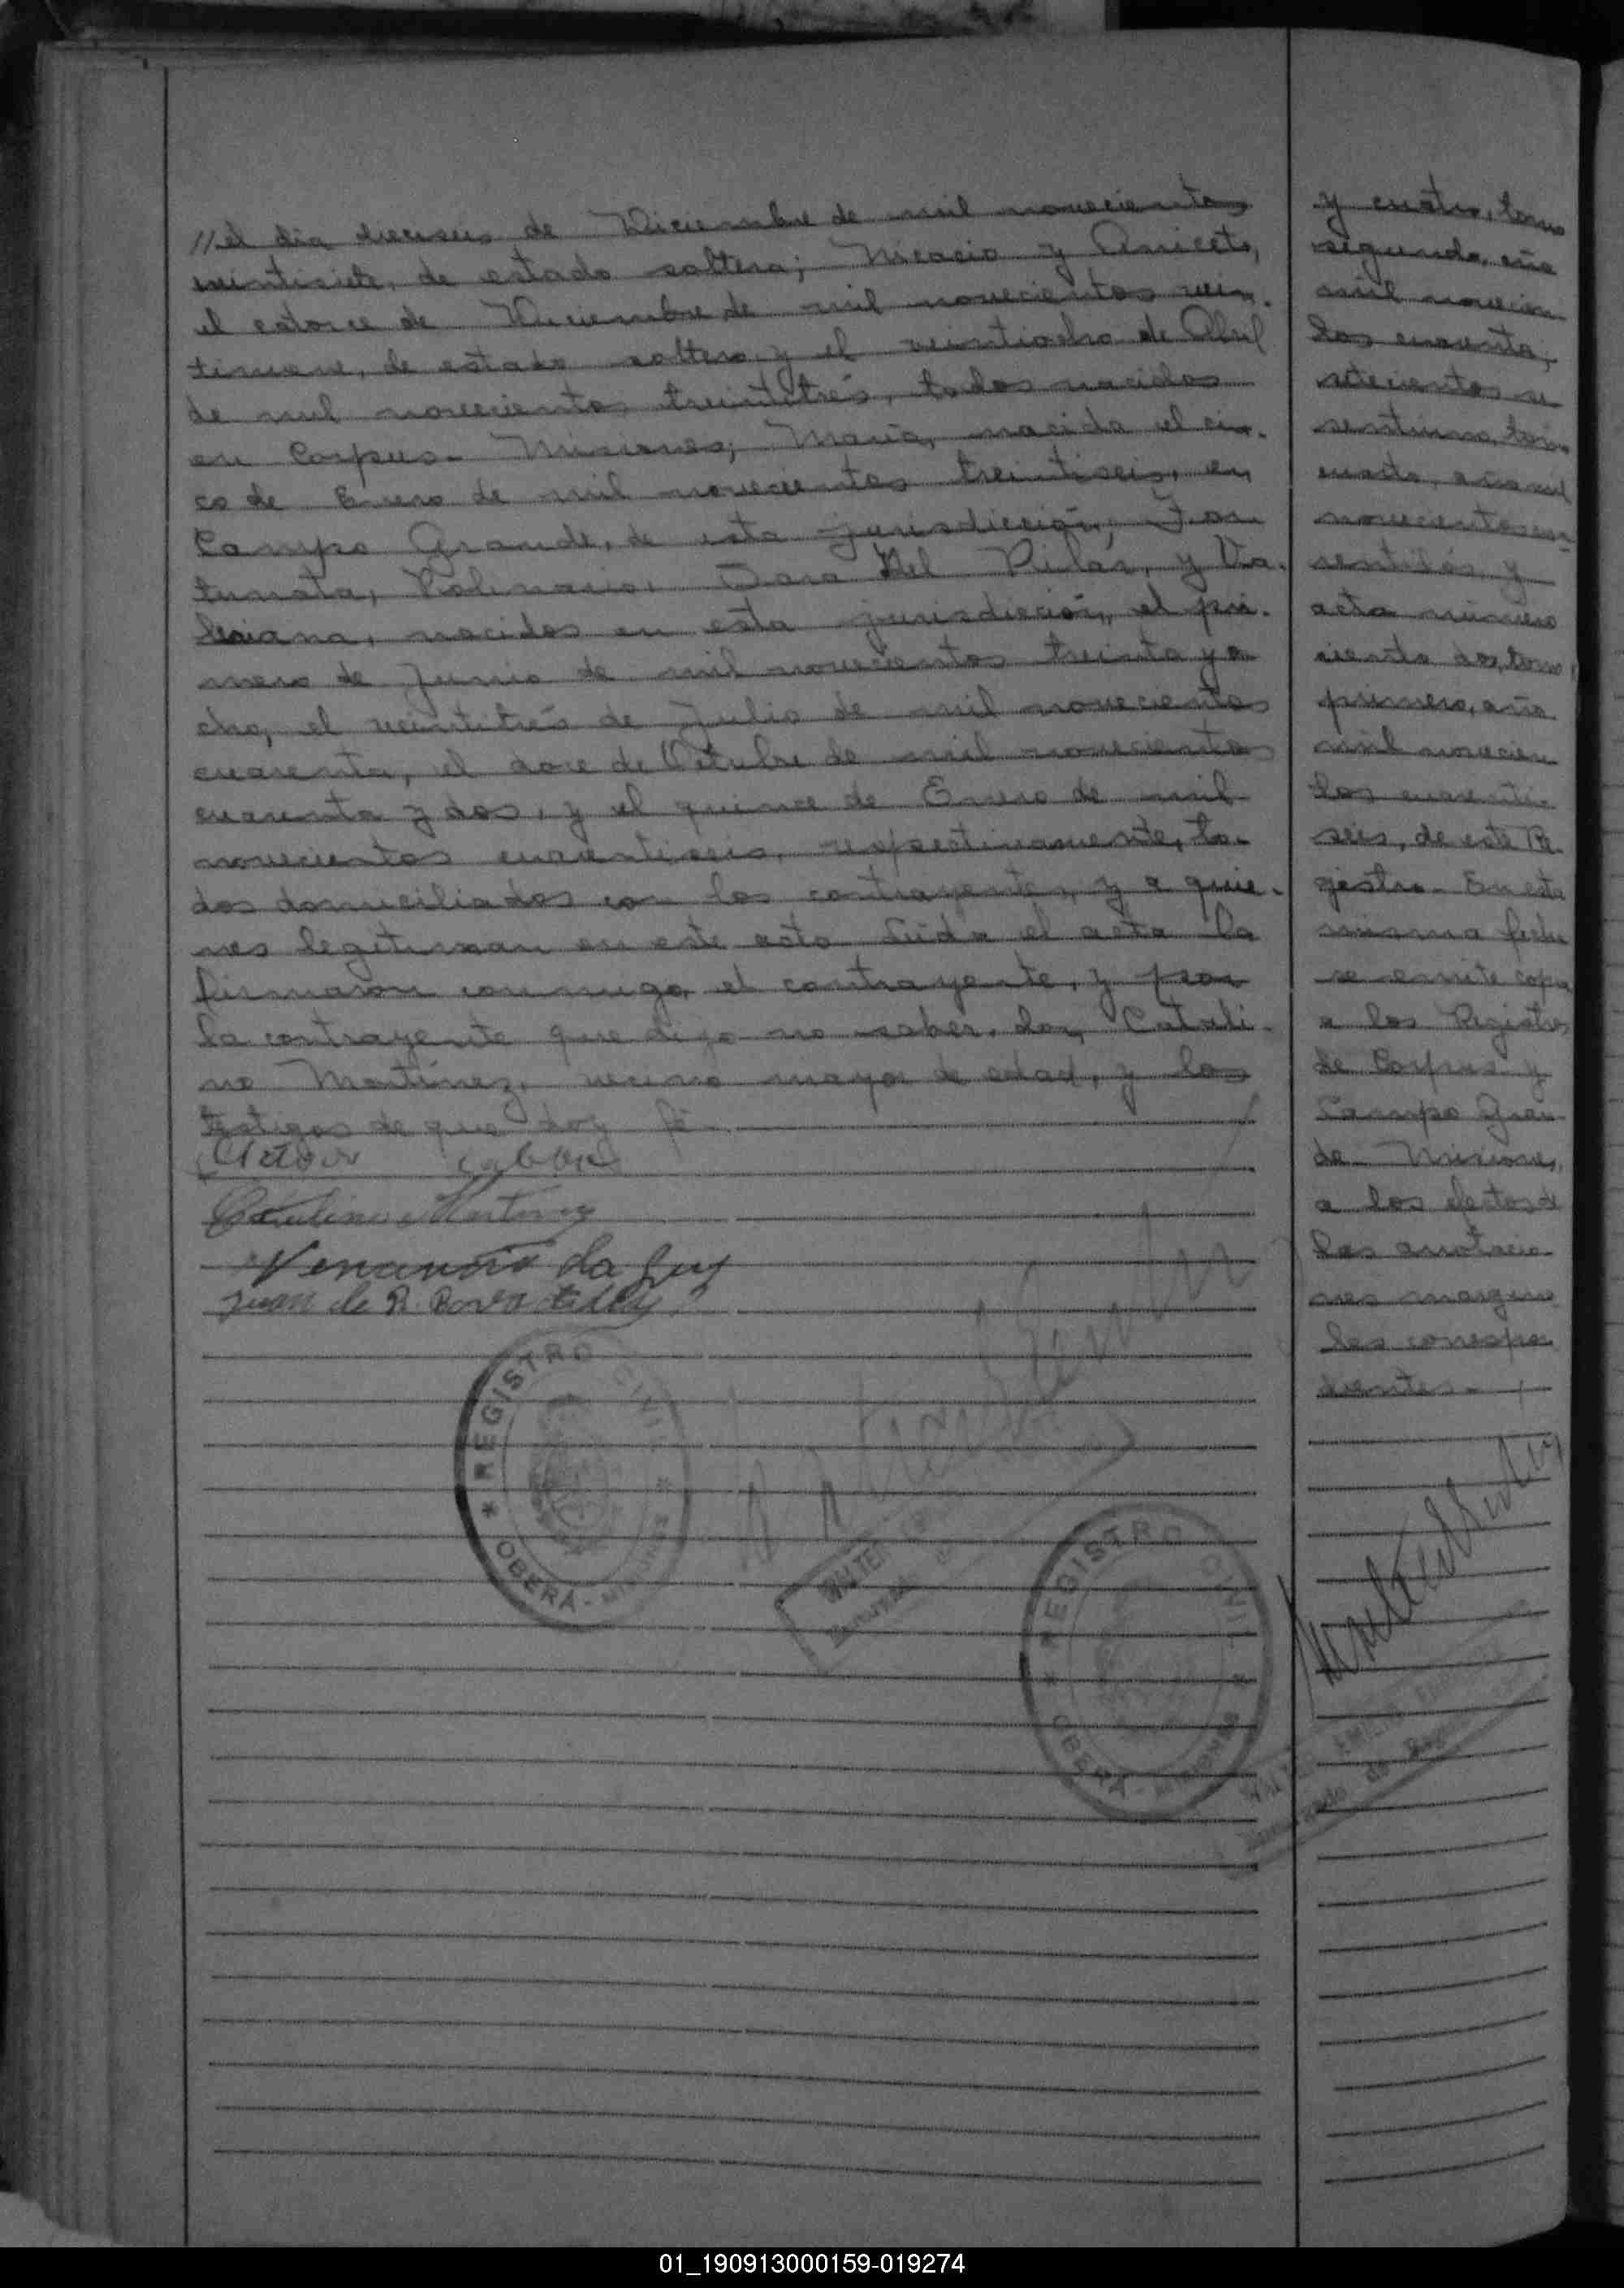 //el dia dieciseis de Diciembre de mil novecientos
veintisiete, de estado soltera; Nicacio y Aniceto,
el catorce de Diciembre de mil novecientos vein-
tinueve, de estado soltero y el veintiocho de Abril
de mil novecientos treintitrés, todos nacidos
en Corpus- Misiones; Maria, nacida el cin-
co de Enero de mil novecientos treintiseis, en
Campo Grande, de esta jurisdicción, For
tunata, Polinario, Sara Del Pilar, y Va-
leriana, nacidos en esta jurisdicción, el pri-
mero de Junio de mil novecientos treinta y o-
cho, el veintitrés de Julio de mil novecientos
cuarenta, el doce de Octubre de mil novecientos
cuarenta y dos, y el quince de Enero de mil
novecientos cuarentiseis, respectivamente, to-
dos domiciliados con los contrayentes, y a quie-
nes legitiman en este acto Leida el acta la
firmaron conmigo, el contrayente, y por
la contrayente que dijo no saber, don Catali-
no Martinez, vecino mayor de edad, y los
testigos de que doy fé.
Catalino Martinez
Venancio da Luz
Juan de R.
REGISTRO CIVIL
* OBERÁ - MISIONES *
WALTER
REGISTRO CIVIL
* OBERÁ - MISIONES *
y cuatro, tomo
segundo, año
mil novecien
tos cuarenta;
setecientos se
sentiuno, tomo
cuarto, año mil
novecientos cua-
rentidós y
acta número
ciento dos, tomo
primero, año
mil novecien
tos cuarenti-
seis, de este Re-
gistro- En esta
misma fecha
se remite copia
a los Registros
de Corpus y
Campo Gran-
de Misiones,
a los efectos de
las anotacio-
nes margina
les correspon
dientes.-
WALTER EMILIO
Encargado de Reg
01_190913000159-019274